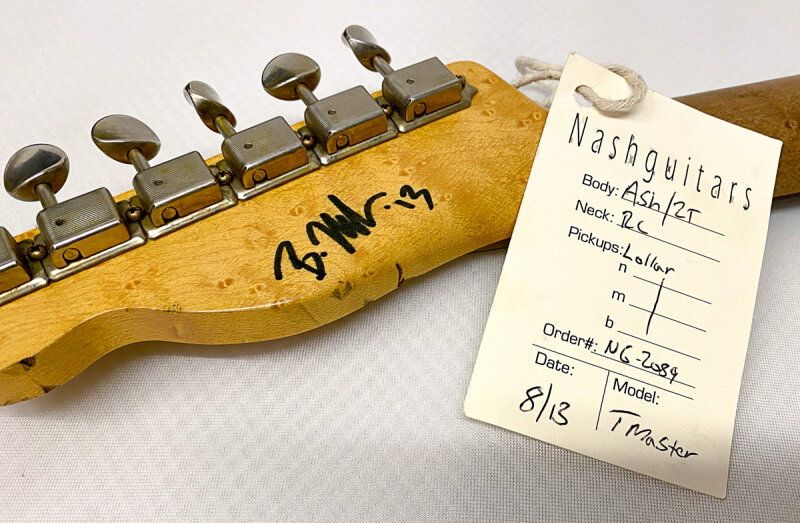 Nashguitars
Body: Ash/2T
Neck: RC
Pickups: Lollar
n
m
b
Order#: NG-2089
Date:
8/13
Model:
TMaster
.13